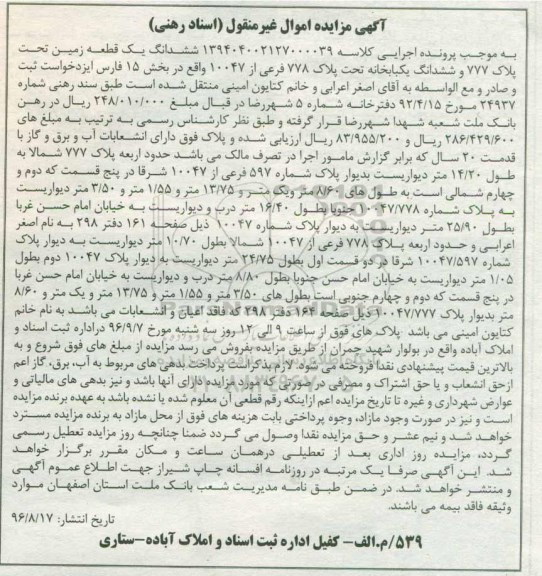 آگهی مزایده اموال غیرمنقول (اسناد رهنی)
به موجب پرونده اجرایی کلاسه ۱۳۹۴۰۴۰۰۲۱۲۷۰۰۰۰۳۹ ششدانگ یک قطعه زمین تحت
پلاک ۷۷۷ و ششدانگ یکبابخانه تحت پلاک ۷۷۸ فرعی از ۱۰۰۴۷ واقع در بخش ۱۵ فارس ایزدخواست ثبت
و صادر و مع الواسطه به آقای اصغر اعرابی و خانم کتایون امینی منتقل شده است طبق سند رهنی شماره
۲۴۹۳۷ مورخ ۹۲/۴/۱۵ دفترخانه شماره ۵ شهررضا در قبال مبلغ ۲۴۸/۰۱۰/۰۰۰ ریال در رهن
بانک ملت شعبه شهدا شهررضا قرار گرفته و طبق نظر کارشناس رسمی به ترتیب به مبلغ های
۲۸۶/۴۲۹/۶۰۰ ریال و ۸۳/۹۵۵/۲۰۰ ریال ارزیابی شده و پلاک فوق دارای انشعابات آب و برق و گاز با
قدمت ۲۰ سال که برابر گزارش مامور اجرا در تصرف مالک می باشد حدود اربعه پلاک ۷۷۷ شمالا به
طول ۱۴/۲۰ متر دیواریست بدیوار پلاک شماره ۵۹۷ فرعی از ۱۰۰۴۷ شرقا در پنج قسمت که دوم و
چهارم شمالی است به طول های ۸/۶۰ متر ویک متر و ۱۳/۷۵ متر و ۱/۵۵ متر و ۳/۵۰ متر دیواریست
به پلاک شماره ۱۰۰۴۷/۷۷۸ جنوبا بطول ۱۶/۴۰ متر درب و دیواریست به خیابان امام حسن غربا
بطول ۲۵/۹۰ متر دیواریست به دیوار پلاک شماره ۱۰۰۴۷ ذیل صفحه ۱۶۱ دفتر ۲۹۸ به نام اصغر
اعرابی و حدود اربعه پلاک ۷۷۸ فرعی از ۱۰۰۴۷ شمالا بطول ۱۰/۷۰ متر دیواریست به دیوار پلاک
شماره ۱۰۰۴۷/۵۹۷ شرقا در دو قسمت اول بطول ۲۴/۷۵ متر دیواریست به دیوار پلاک ۱۰۰۴۷ دوم بطول
۱/۰۵ متر دیواریست به خیابان امام حسن جنوبا بطول ۸/۸۰ متر درب و دیواریست به خیابان امام حسن غربا
در پنج قسمت که دوم و چهارم جنوبی است بطول های ۳/۵۰ متر و ۱/۵۵ متر و ۱۳/۷۵ متر و یک متر و ۸/۶۰
متر بدیوار پلاک ۱۰۰۴۷/۷۷۷ ذیل صفحه ۱۶۴ دفتر ۲۹۸ که فاقد اعیان و انشعابات می باشد به نام خانم
کتایون امینی می باشد پلاک های فوق از ساعت ۹ الی ۱۲ روز سه شنبه مورخ ۹۶/۹/۷ دراداره ثبت اسناد و
املاک آباده واقع در بولوار شهید چمران از طریق مزایده بفروش می رسد مزایده از مبلغ های فوق شروع و به
بالاترین قیمت پیشنهادی نقدا فروخته می شود. لازم بذکراست پرداخت بدهی های مربوط به آب، برق، گاز اعم
ازحق انشعاب و یا حق اشتراک و مصرف در صورتی که مورد مزایده دارای آنها باشد و نیز بدهی های مالیاتی و
عوارض شهرداری و غیره تا تاریخ مزایده اعم ازاینکه رقم قطعی آن معلوم شده یا نشده باشد به عهده برنده مزایده
است و نیز در صورت وجود مازاد، وجوه پرداختی بابت هزینه های فوق از محل مازاد به برنده مزایده مسترد
خواهد شد و نیم عشر و حق مزایده نقدا وصول می گردد ضمنا چنانچه روز مزایده تعطیل رسمی
گردد، مزایده روز اداری بعد از تعطیلی درهمان ساعت و مکان مقرر برگزار خواهد
شد. این آگهی صرفا یک مرتبه در روزنامه افسانه چاپ شیراز جهت اطلاع عموم آگهی
و منتشر خواهد شد. در ضمن طبق نامه مدیریت شعب بانک ملت استان اصفهان موارد
وثیقه فاقد بیمه می باشند.
تاریخ انتشار: ۹۶/۸/۱۷
۵۳۹/م.الف- کفیل اداره ثبت اسناد و املاک آباده-ستاری